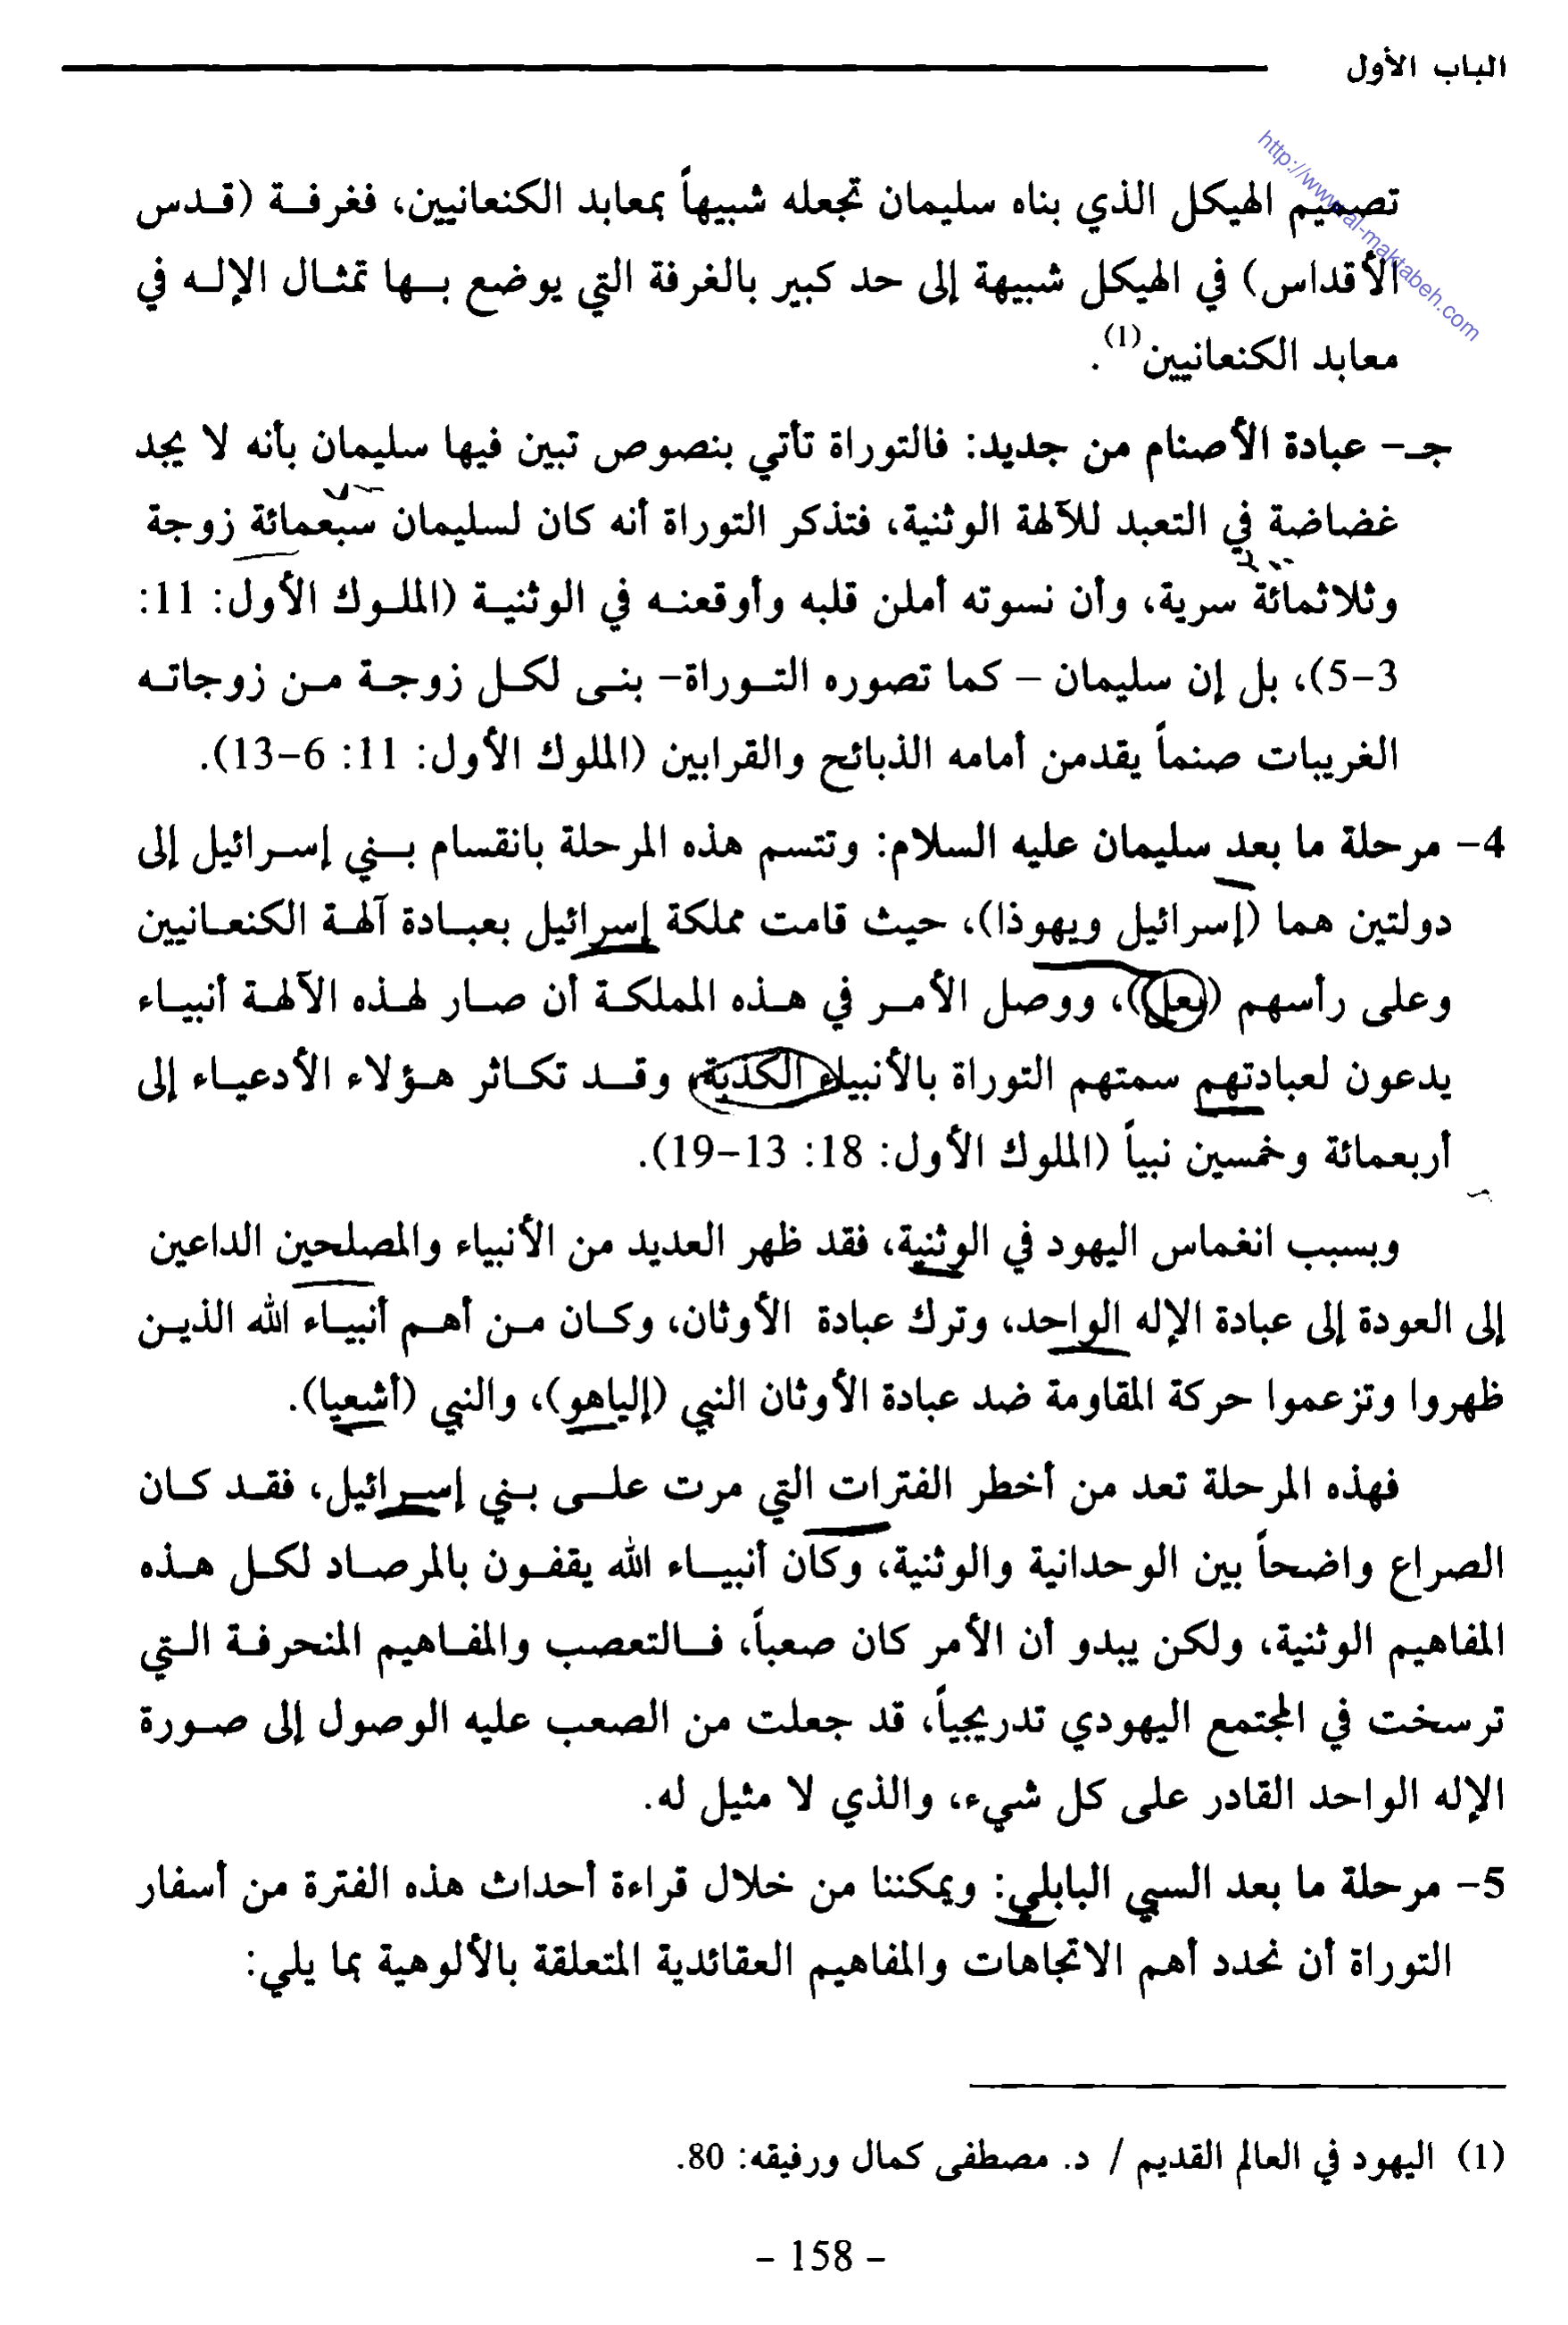 الباب الأول
http://www.al-maktabeh.com
تصميم الهيكل الذي بناه سليمان تجعله شبيهاً بمعابد الكنعانيين، فغرفة (قدس
الأقداس) في الهيكل شبيهة إلى حد كبير بالغرفة التي يوضع بها تمثال الإله في
معابد الكنعانيين(1).
جـ- عبادة الأصنام من جديد: فالتوراة تأتي بنصوص تبين فيها سليمان بأنه لا يجد
غضاضة في التعبد للآلهة الوثنية، فتذكر التوراة أنه كان لسليمان سبعمائة زوجة
وثلاثمائة سرية، وأن نسوته أملن قلبه وأوقعنه في الوثنية (الملوك الأول: 11:
3-5)، بل إن سليمان – كما تصوره التوراة- بنى لكل زوجة من زوجاته
الغريبات صنماً يقدمن أمامه الذبائح والقرابين (الملوك الأول: 11: 6-13).
4- مرحلة ما بعد سليمان عليه السلام: وتتسم هذه المرحلة بانقسام بني إسرائيل إلى
دولتين هما (إسرائيل ويهوذا)، حيث قامت مملكة إسرائيل بعبادة آلهة الكنعانيين
وعلى رأسهم (بعل)، ووصل الأمر في هذه المملكة أن صار لهذه الآلهة أنبياء
يدعون لعبادتهم سمتهم التوراة بالأنبياء الكذبة، وقد تكاثر هؤلاء الأدعياء إلى
أربعمائة وخمسين نبياً (الملوك الأول: 18: 13-19).
وبسبب انغماس اليهود في الوثنية، فقد ظهر العديد من الأنبياء والمصلحين الداعين
إلى العودة إلى عبادة الإله الواحد، وترك عبادة الأوثان، وكان من أهم أنبياء الله الذين
ظهروا وتزعموا حركة المقاومة ضد عبادة الأوثان النبي (إلياهو)، والنبي (أشعيا).
فهذه المرحلة تعد من أخطر الفترات التي مرت على بني إسرائيل، فقد كان
الصراع واضحاً بين الوحدانية والوثنية، وكان أنبياء الله يقفون بالمرصاد لكل هذه
المفاهيم الوثنية، ولكن يبدو أن الأمر كان صعباً، فالتعصب والمفاهيم المنحرفة التي
ترسخت في المجتمع اليهودي تدريجياً، قد جعلت من الصعب عليه الوصول إلى صورة
الإله الواحد القادر على كل شيء، والذي لا مثيل له.
5- مرحلة ما بعد السبي البابلي: ويمكننا من خلال قراءة أحداث هذه الفترة من أسفار
التوراة أن نحدد أهم الاتجاهات والمفاهيم العقائدية المتعلقة بالألوهية بما يلي:
(1) اليهود في العالم القديم / د. مصطفى كمال ورفيقه: 80.
- 158 -